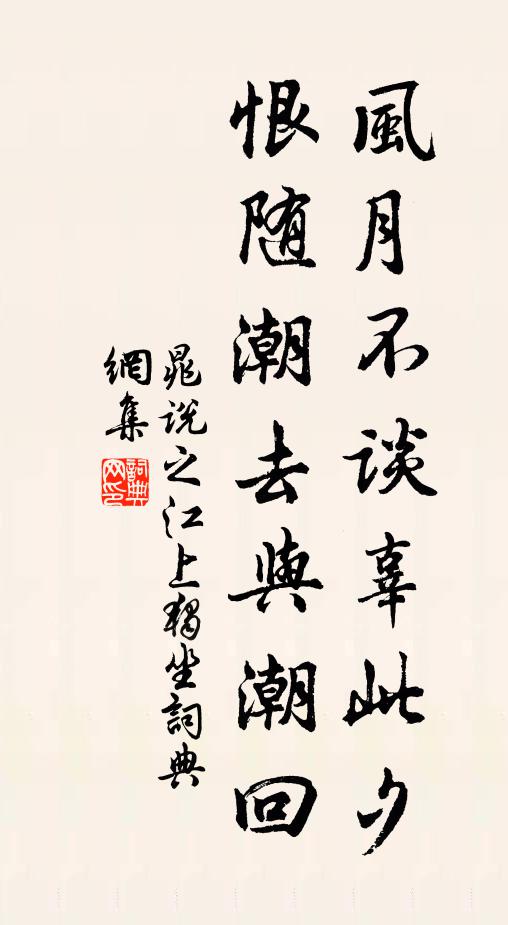 風月不談辜此夕
恨随潮去與潮回
晁説之江上獨坐詞典
網集
詞典
网印